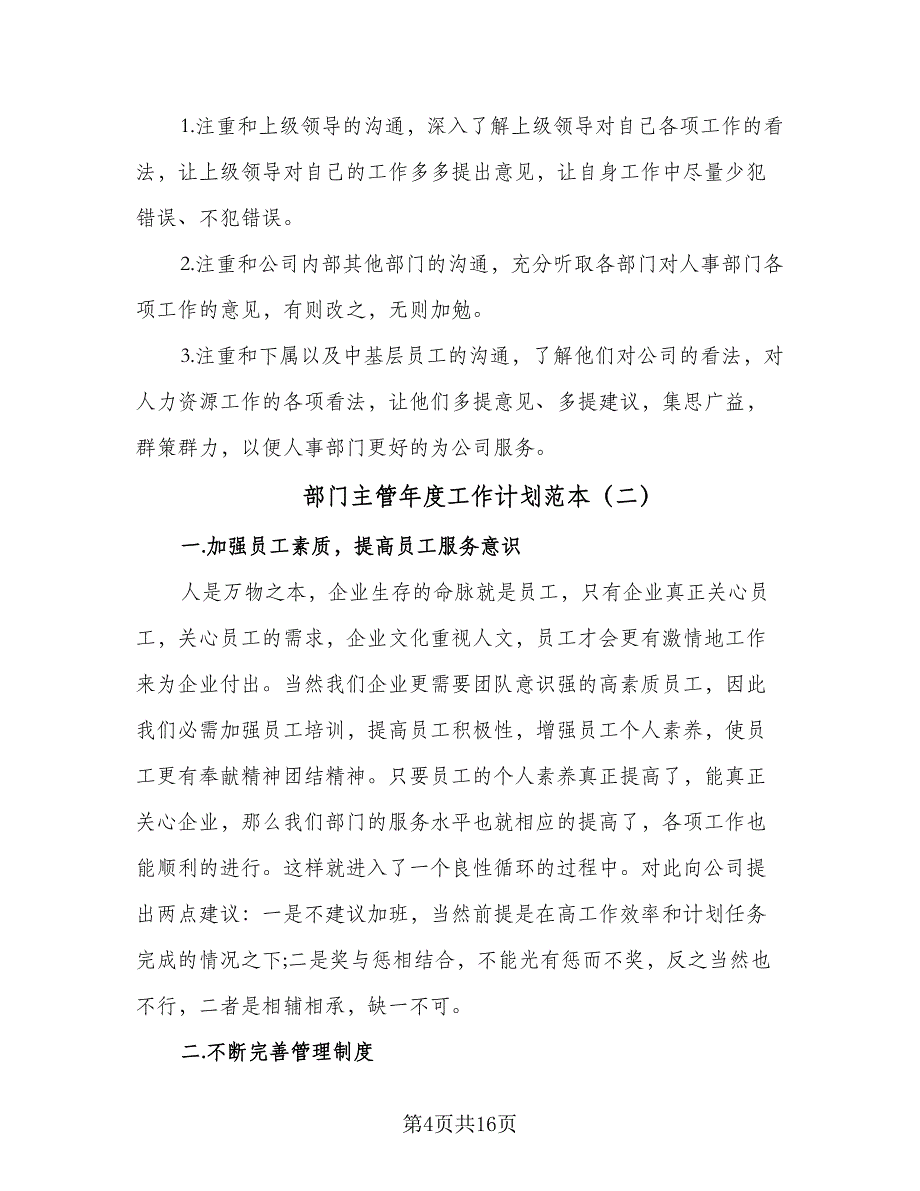 1.注重和上级领导的沟通，深入了解上级领导对自己各项工作的看
法，让上级领导对自己的工作多多提出意见，让自身工作中尽量少犯
错误、不犯错误。
2.注重和公司内部其他部门的沟通，充分听取各部门对人事部门各
项工作的意见，有则改之，无则加勉。
3.注重和下属以及中基层员工的沟通，了解他们对公司的看法，对
人力资源工作的各项看法，让他们多提意见、多提建议，集思广益，
群策群力，以便人事部门更好的为公司服务。
部门主管年度工作计划范本（二）
一.加强员工素质，提高员工服务意识
人是万物之本，企业生存的命脉就是员工，只有企业真正关心员
工，关心员工的需求，企业文化重视人文，员工才会更有激情地工作
来为企业付出。当然我们企业更需要团队意识强的高素质员工，因此
我们必需加强员工培训，提高员工积极性，增强员工个人素养，使员
工更有奉献精神团结精神。只要员工的个人素养真正提高了，能真正
关心企业，那么我们部门的服务水平也就相应的提高了，各项工作也
能顺利的进行。这样就进入了一个良性循环的过程中。对此向公司提
出两点建议：一是不建议加班，当然前提是在高工作效率和计划任务
完成的情况之下;二是奖与惩相结合，不能光有惩而不奖，反之当然也
不行，二者是相辅相承，缺一不可。
二.不断完善管理制度
第4页共16页